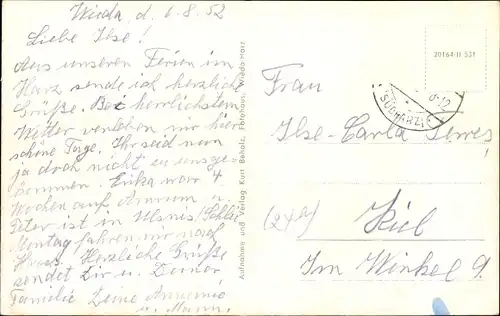 Wieda, d. 6.8.52
Liebe Ilse!
Aus unseren Ferien im
Harz sende ich herzliche
Grüße. Bei herrlichstem
Wetter verleben wir hier
schöne Tage. Ihr seid nun
ja doch nicht zu uns ge-
kommen. Erika war 4
Wochen auf Amrum u.
Peter ist in Ulsnis/Schlei
Montag fahren wir nach
Haus. Herzliche Grüße
sendet Dir u. Deiner
Familie Deine Annemie
u. Mann.
Aufnahme und Verlag Kurt Baholz, Fotohaus, Wieda-Harz
20164-II 531
SÜDHARZ
Frau
Ilse-Carla
(24a)
Kiel
Im Winkel 9.